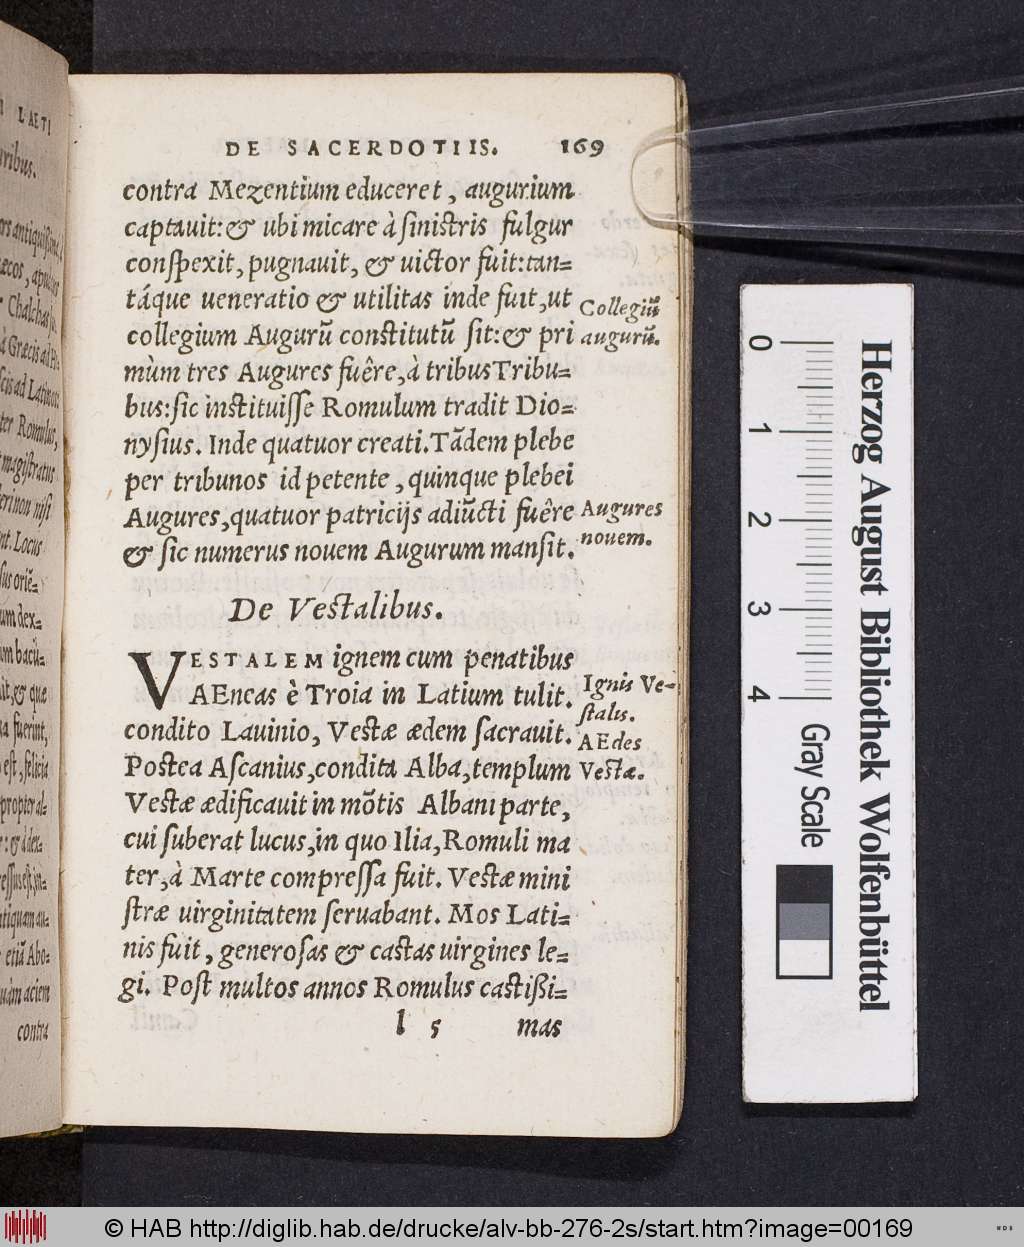 I LAETI
DE SACERDOTIIS. 169
contra Mezentium educeret, augurium
captauit:& ubi micare à sinistris fulgur
conspexit, pugnauit, & uictor fuit:tan=
táque ueneratio & utilitas inde fuit,ut
collegium Augurũ constitutũ sit:& pri
mùm tres Augures fuêre,à tribus Tribu=
bus:sic instituisse Romulum tradit Dio=
nysius. Inde quatuor creati. Tãdem plebe
per tribunos id petente, quinque plebei
Augures,quatuor patricijs adiũcti fuêre
& sic numerus nouem Augurum mansit.
Collegiũ
augurũ.
Augures
nouem.
De Vestalibus.
VESTALEM ignem cum penatibus
AEneas è Troia in Latium tulit.
condito Lauinio, Vestæ ædem sacrauit.
Postea Ascanius,condita Alba,templum
Vestæ ædificauit in mõtis Albani parte,
cui suberat lucus,in quo Ilia,Romuli ma
ter,à Marte compressa fuit. Vestæ mini
stræ uirginitatem seruabant. Mos Lati=
nis fuit, generosas & castas uirgines le=
gi. Post multos annos Romulus castißi=
Ignis Ve=
stalis.
AEdes
Vestæ.
l 5 mas
ribus.
antiquißim
æcos, apud
Chalchas
à Græcis ad
cis ad Latinos
ter Romulus,
magistratus
eri non nisi
nt. Locus
sus oriẽ=
um dex=
m bacu=
it,& quæ
a fuerint,
est, felicia
propter al=
:& à dex=
essus est,in=
ntiquam au=
etiã Abo=
uàm aciem
contra
Herzog August Bibliothek Wolfenbüttel
0 1 2 3 4
Gray Scale
© HAB http://diglib.hab.de/drucke/alv-bb-276-2s/start.htm?image=00169
WDB